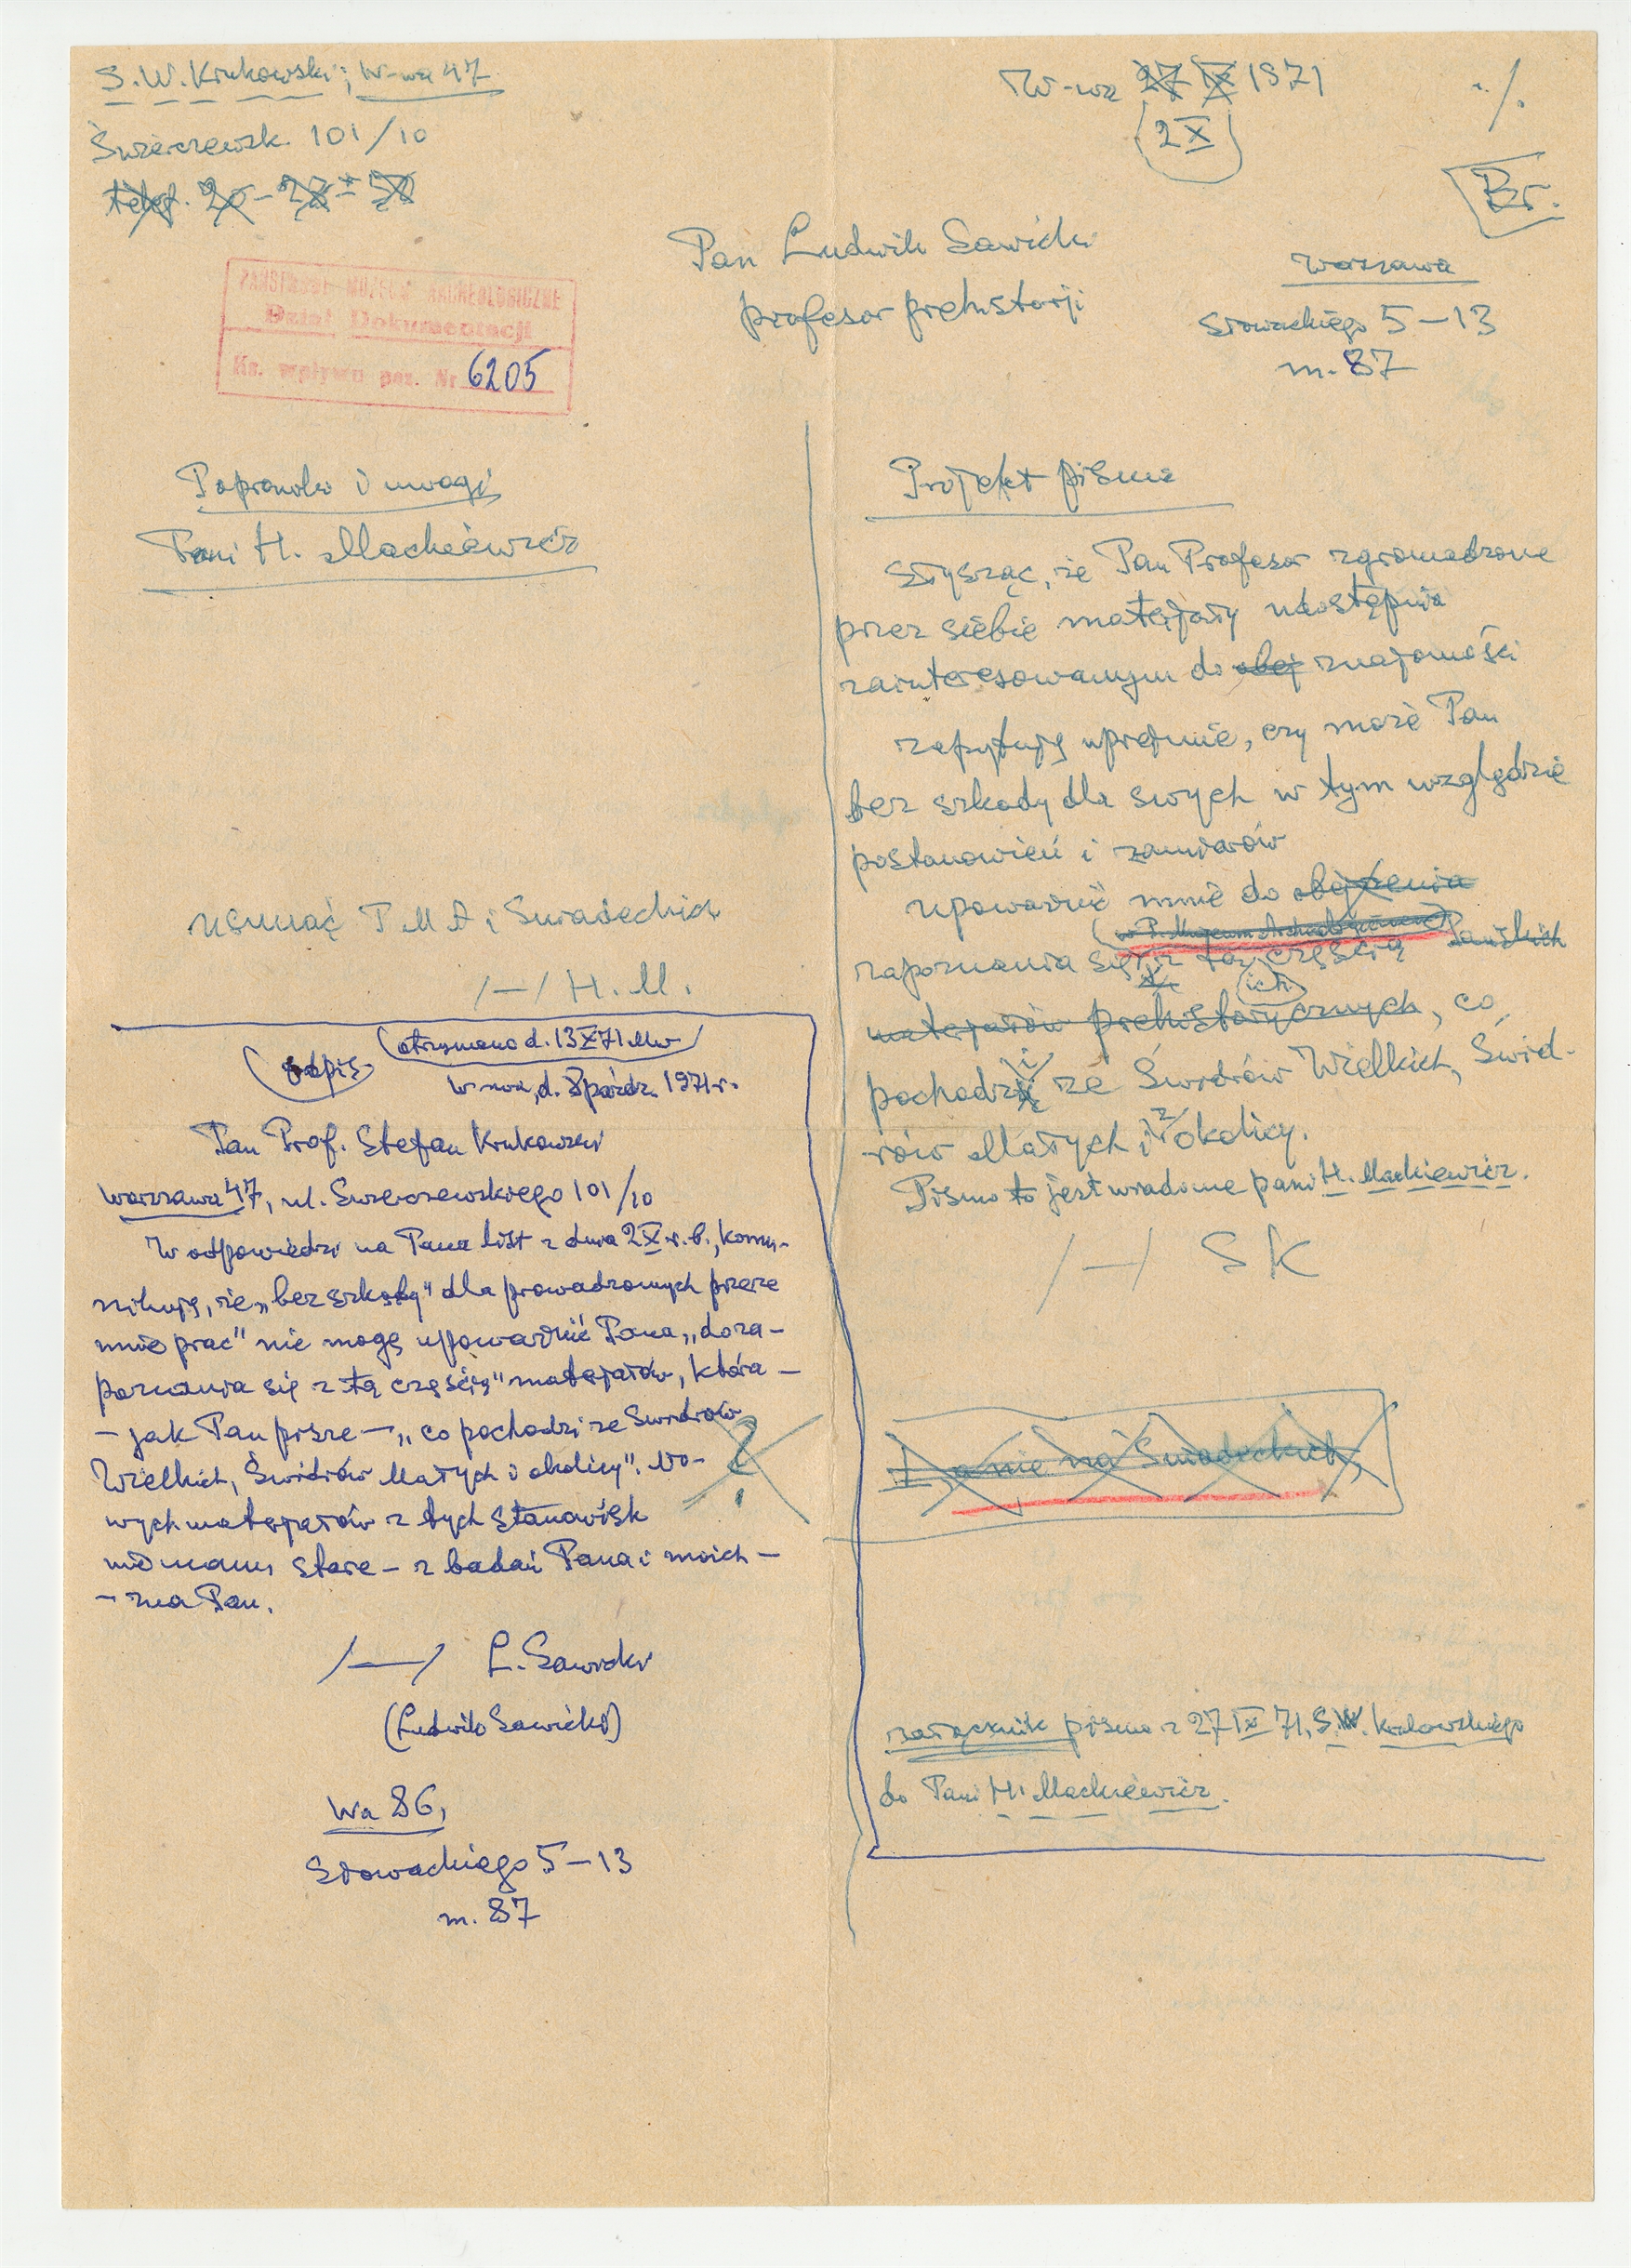 S.W. Krukowski; W-wa 47
Świerczewsk. 101/10
telef. 20-28-50
W-wa 27 IX 1971
2 X
·/.
Br.
Pan Ludwik Sawicki
profesor prehistorji
Warszawa
Słowackiego 5-13
m. 87
PAŃSTWOWE MUZEUM ARCHEOLOGICZNE
Dział Dokumentacji
Ks. wpływu poz. Nr 6205
Poprawki i uwagi
Pani H. Mackiewicz
usunąć P M A i Śniadeckich
/—/ H. M.
odpis
otrzymano d. 13 X 71 Mw
W-wa, d. 8 paźdz. 1971 r.
Pan Prof. Stefan Krukowski
Warszawa 47, ul. Świerczewskiego 101/10
W odpowiedzi na Pana list z dnia 2 X r.b., komu-
nikuję, że „bez szkody" dla prowadzonych przeze
mnie prac" nie mogę upoważnić Pana „do za-
poznania się z tą częścią" materjałów, która —
— jak Pan pisze —, „co pochodzi ze Świdrów
Wielkich, Świdrów Małych i okolicy". No-
wych materjałów z tych stanowisk
nie mamy stare — z badań Pana i moich —
— zna Pan.
?
/—/ L. Sawicki
(Ludwik Sawicki)
Wa 86,
Słowackiego 5-13
m. 87
Projekt pisma
Słysząc, że Pan Profesor zgromadzone
przez siebie materjały udostępnia
zainteresowanym do obej znajomości
zapytuję uprzejmie, czy może Pan
bez szkody dla swych w tym względzie
postanowień i zamiarów
upoważnić mnie do obejrzenia
(w P. Muzeum Archeologicznem) Pańskich
zapoznania się z tą częścią
ich
materjałów prehistorycznych, co
pochodzi ze Świdrów Wielkich, Świd-
rów Małych i z okolicy.
Pismo to jest wiadome pani H. Mackiewicz.
/—/ SK
a nie na Śniadeckich,
załącznik pisma z 27 IX 71, S.W. Krukowskiego
do Pani H. Mackiewicz.